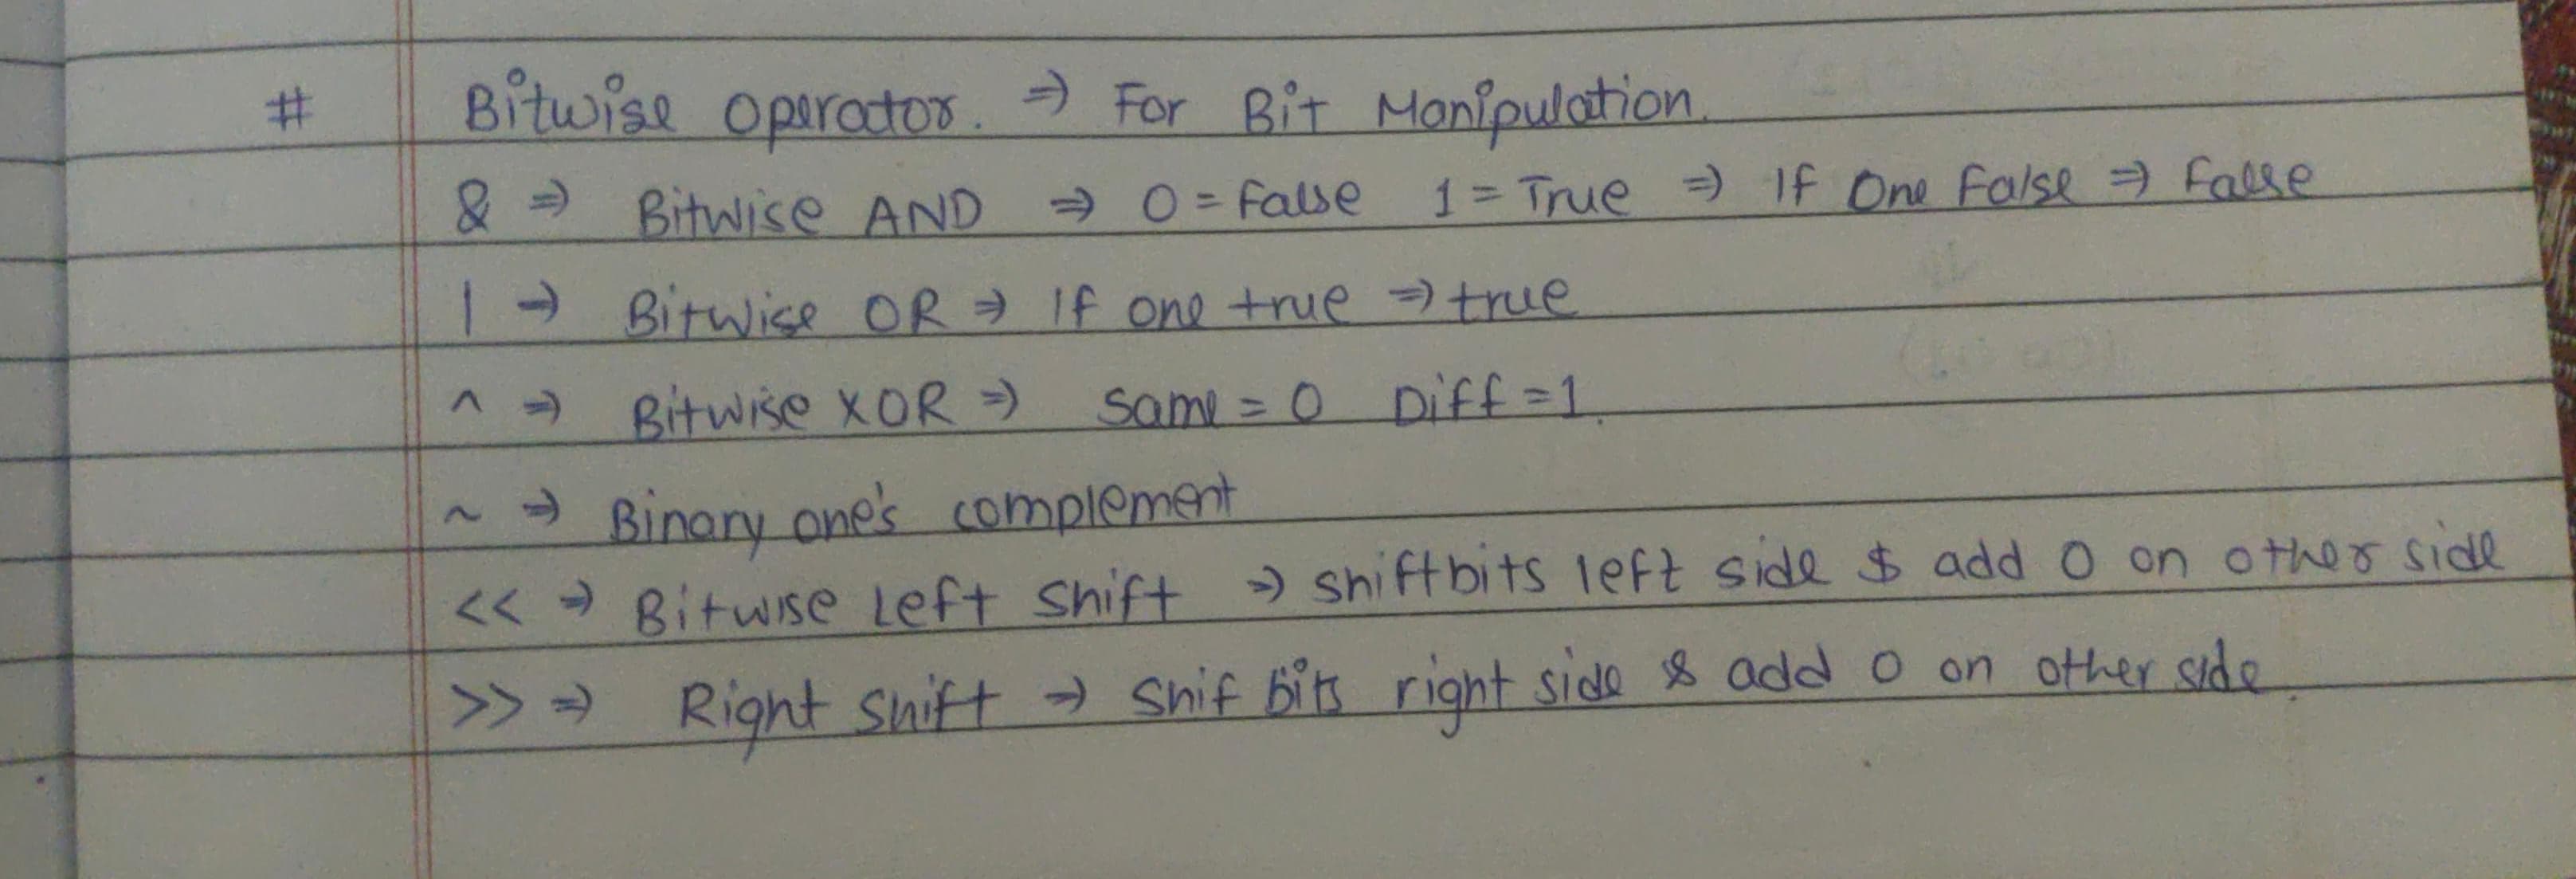 # Bitwise Operator. ⇒ For Bit Manipulation.
& ⇒ Bitwise AND ⇒ 0 = False 1 = True ⇒ If One False ⇒ False
| ⇒ Bitwise OR ⇒ If one true ⇒ true
^ ⇒ Bitwise XOR ⇒ Same = 0 Diff = 1.
~ ⇒ Binary one's complement
<< ⇒ Bitwise Left Shift ⇒ shift bits left side $ add 0 on other side
>> ⇒ Right Shift ⇒ Shif bits right side & add 0 on other side.